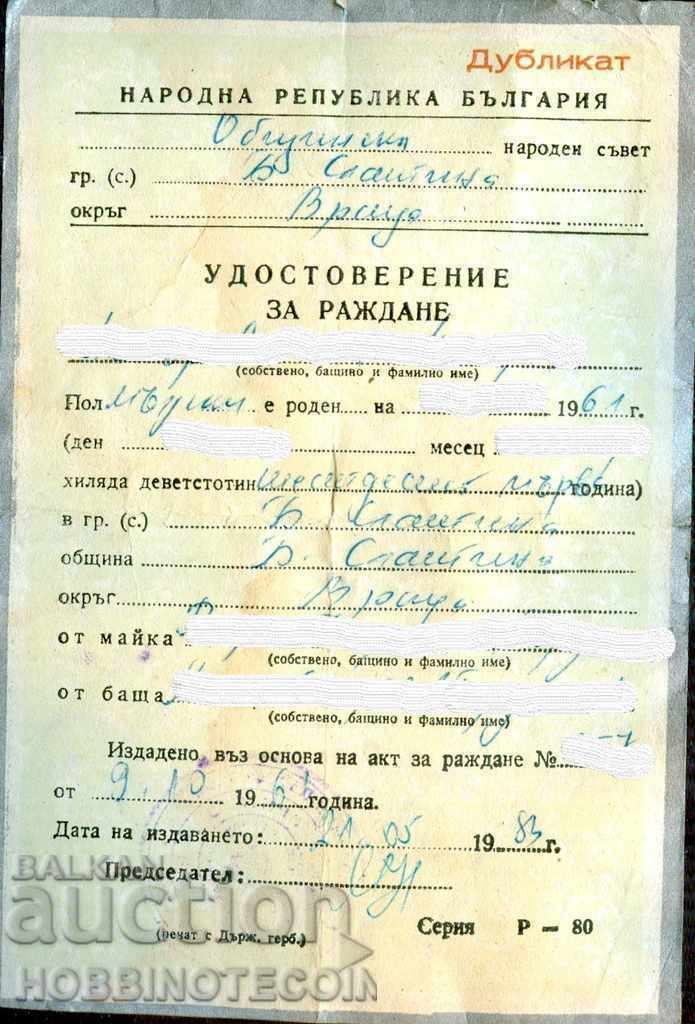 Дубликат
НАРОДНА РЕПУБЛИКА БЪЛГАРИЯ
Общински народен съвет
гр. (с.) Б Слатина
окръг Враца
УДОСТОВЕРЕНИЕ
ЗА РАЖДАНЕ
(собствено, бащино и фамилно име)
Пол мъжки е роден на 1961 г.
(ден месец
хиляда деветстотин шестдесет първа година)
в гр. (с.) Б Слатина
община Б. Слатина
окръг Враца
от майка
(собствено, бащино и фамилно име)
от баща
(собствено, бащино и фамилно име)
Издадено въз основа на акт за раждане №
от 9.10 1961 година.
Дата на издаването: 21 05 1983 г.
Председател:
(печат с Държ. герб.)
Серия Р — 80
BALKAN
auction
HOBBINOTECOIN